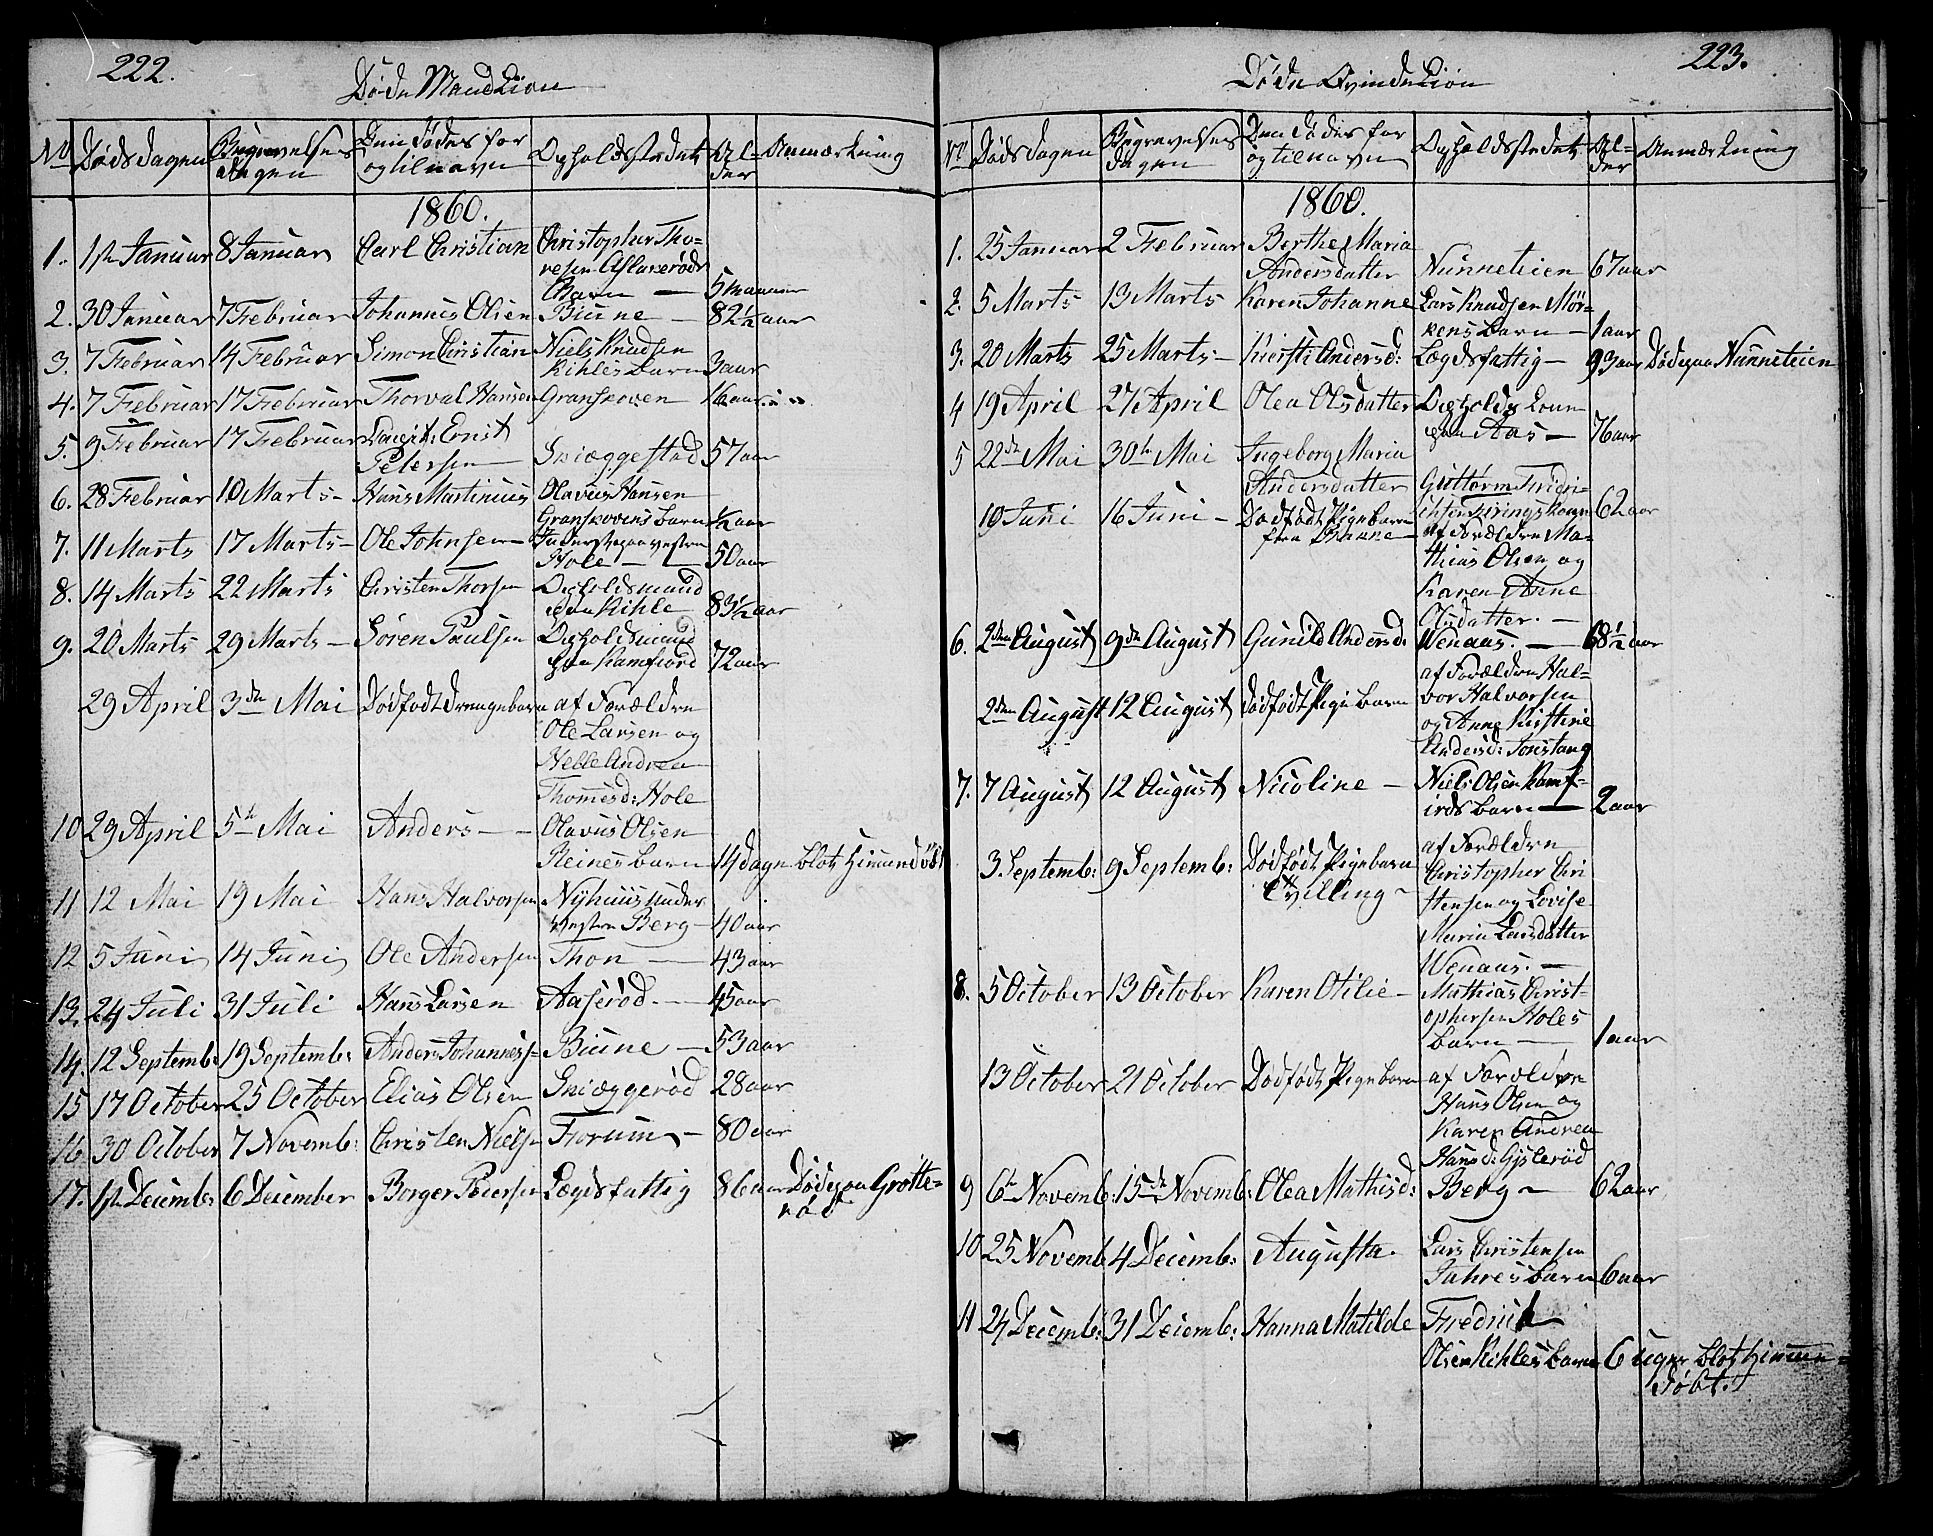 222.
Døde Mandkiøn
No Dødsdagen Begravelses dagen Den Dødes for og tilnavn Opholdsstedet Al- der Anmærkning
1860.
1. 1ste Januar 8 Januar Carl Christian Christopher Tho-
resen Aslaxerøds
Barn — 5 maaner
2. 30 Januar 7 Februar Johannes Olsen Biune — 82½ aar
3. 7 Februar 14 Februar Simon Christian Niels Knudsen
Kihles Barn 3 aar
4. 7 Februar 17 Februar Thorval Hansen Granskoven 16 aar
5. 9 Februar 17 Februar Laurit: Ernst
Petersen — Sniæggestad 57 aar
6. 28 Februar 10 Marts — Hans Martinus Olavus Hansen
Granskovens barn ½ aar
7. 11 Marts 17 Marts — Ole Johnsen — Inderst paa vestre
Hole — 50 aar
8. 14 Marts 22 Marts Christen Thorsen Opholdsmand
paa Kihle 83½ aar
9. 20 Marts 29 Marts — Søren Paulsen Opholdsmand
paa Kamfiord 72 aar
29 April 3de Mai Dødfødt Drengebarn af Forældre
Ole Larsen og
Helle Andrea
Thomesd: Hole
10 29 April 5te Mai Anders — Olavus Olsen
Reines barn 14 dage blot hiemmedøbt
11 12 Mai 19 Mai Hans Halvorsen Nyhuus under
vestre Berg — 40 aar
12 5 Juni 14 Juni Ole Andersen Thon — 43 aar
13. 24 Juli 31 Juli Hans Larsen Aaserød — 45 aar
14. 12 Septemb: 19 Septemb: Anders Johanness — Biune — 53 aar
15 17 October 25 October Elias Olsen Sniæggerød 28 aar
16 30 October 7 Novemb: Christen Nielsen Forum — 80 aar
17. 1ste Decemb: 6 December Borger Peersen Lægdsfattig 86 aar Døde paa Grötte-
rød
223.
Døde Qvindekiøn
No Dødsdagen Begravelses dagen Den Dødes for og tilnavn Opholdsstedet Al- der Anmærkning
1860.
1. 25 Januar 2 Februar Berthe Maria
Andersdatter Nunneteien 67 aar
2. 5 Marts 13 Marts — Karen Johanne Lars Knudsen Mör-
kens barn — 1 aar
3. 20 Marts 25 Marts — Kiersti Andersd: Lægdsfattig — 93 aar Døde paa Nunneteien
4 19 April 27 April Olea Olsdatter Opholds Kone
paa Aas — 76 aar
5 22de Mai 30te Mai Ingeborg Maria
Andersdatter Guttorm Fredri-
6 2 aar
10 Juni 16 Juni — Dødfødt Pigebarn
fra Biune — af Forældre Ma-
thias Olsen og
Karen Anne
Olsdatter. —
6. 2den August 9de August Gunild Andersd: Wenaas. — 68½ aar
2den August 12 August Dødfødt Pigebarn af Forældre Hal-
vor Halvorsen
og Anne Kistine
Andersd: Tonstang
7. 7 August 12 August Nicoline — Niels Olsen Kamf-
iords barn — 2 aar
3. Septemb: 9 Septemb: Dødfødt Pigebarn
Tvilling — af Forældre
Christopher Chri
stensen og Lovise
Maria Larsdatter
Wenaas. —
8. 5 October 13 October Karen Otilie — Mathias Christ-
ophersen Holes
barn — 1 aar
13 October 21 October Dødfødt Pigebarn af Forældre
Hans Olsen og
Karen Andrea
Hansd: Gislerød
9 6te Novemb: 15de Novemb: Olea Mathisd: Berg — 62 aar
10 25 Novemb 4 Decemb: Augusta. Lars Christensen
Jahres barn 6 aar
11 24 Decemb: 31 Decemb: Hanna Matilde Fredrik
Olsen Kihles barn 6 uger blot hiemme-
døbt.